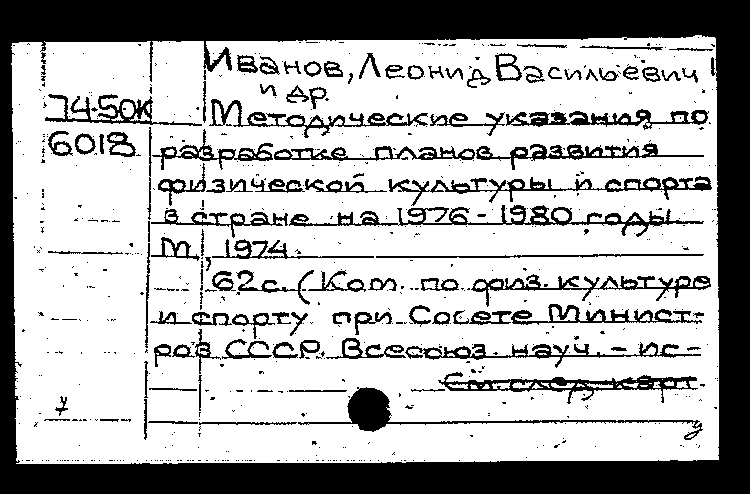 Иванов, Леонид Васильевич
и др.
74-50к Методические указания по
6018 разработке планов развития
физической культуры и спорта
в стране на 1976-1980 годы
М., 1974.
62с. (Ком. по физ. культуре
и спорту при Совете Минист-
ров СССР. Всесоюз. науч. - ис-
См. след. карт.
у